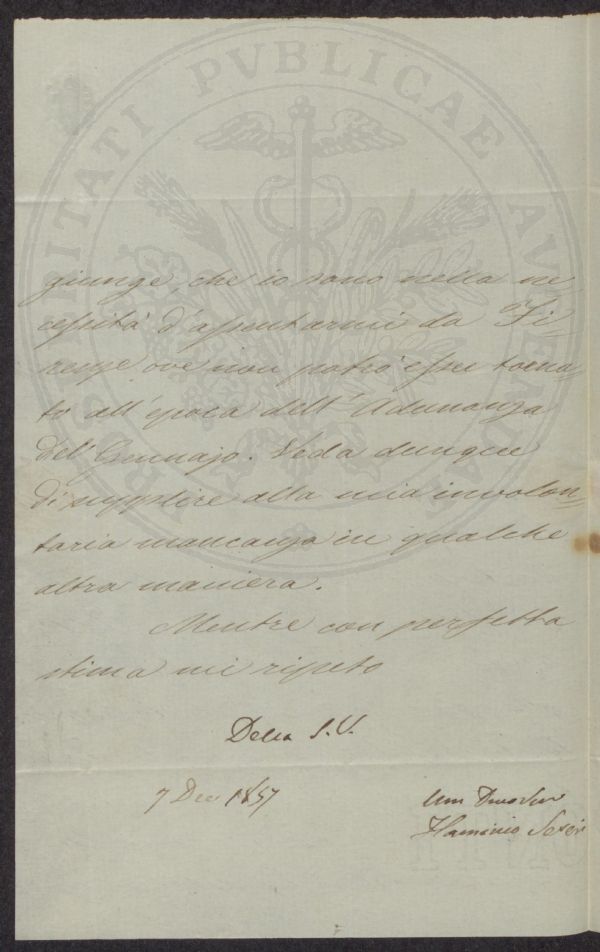 PROSPERITATI PVBLICAE AVGENDAE
giunge, che io sono nella ne,
cessità d'assentarmi da Fi,
renze ove non potrò esser torna=
to all'epoca dell'Adunanza
del Gennajo. Veda dunque
di supplire alla mia involon=
taria mancanza in qualche
altra maniera.
Mentre con perfetta
stima mi ripeto
Della S.V.
7 Dec 1857
Um Devo Ser
Flaminio Severi